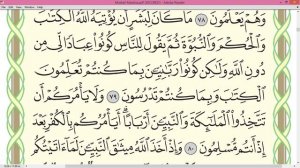 Mushaf Madina.pdf (SECURED) - Adobe Reader
وَهُمْ يَعْلَمُونَ ٧٨ مَا كَانَ لِبَشَرٍ أَن يُؤْتِيَهُ ٱللَّهُ ٱلْكِتَٰبَ
وَٱلْحُكْمَ وَٱلنُّبُوَّةَ ثُمَّ يَقُولَ لِلنَّاسِ كُونُوا۟ عِبَادًا لِّى مِن
دُونِ ٱللَّهِ وَلَٰكِن كُونُوا۟ رَبَّٰنِيِّـۧنَ بِمَا كُنتُمْ تُعَلِّمُونَ
ٱلْكِتَٰبَ وَبِمَا كُنتُمْ تَدْرُسُونَ ٧٩ وَلَا يَأْمُرَكُمْ أَن
تَتَّخِذُوا۟ ٱلْمَلَٰٓئِكَةَ وَٱلنَّبِيِّـۧنَ أَرْبَابًا أَيَأْمُرُكُم بِٱلْكُفْرِ بَعْدَ
إِذْ أَنتُم مُّسْلِمُونَ ٨٠ وَإِذْ أَخَذَ ٱللَّهُ مِيثَٰقَ ٱلنَّبِيِّـۧنَ لَمَآ ءَاتَيْتُكُم